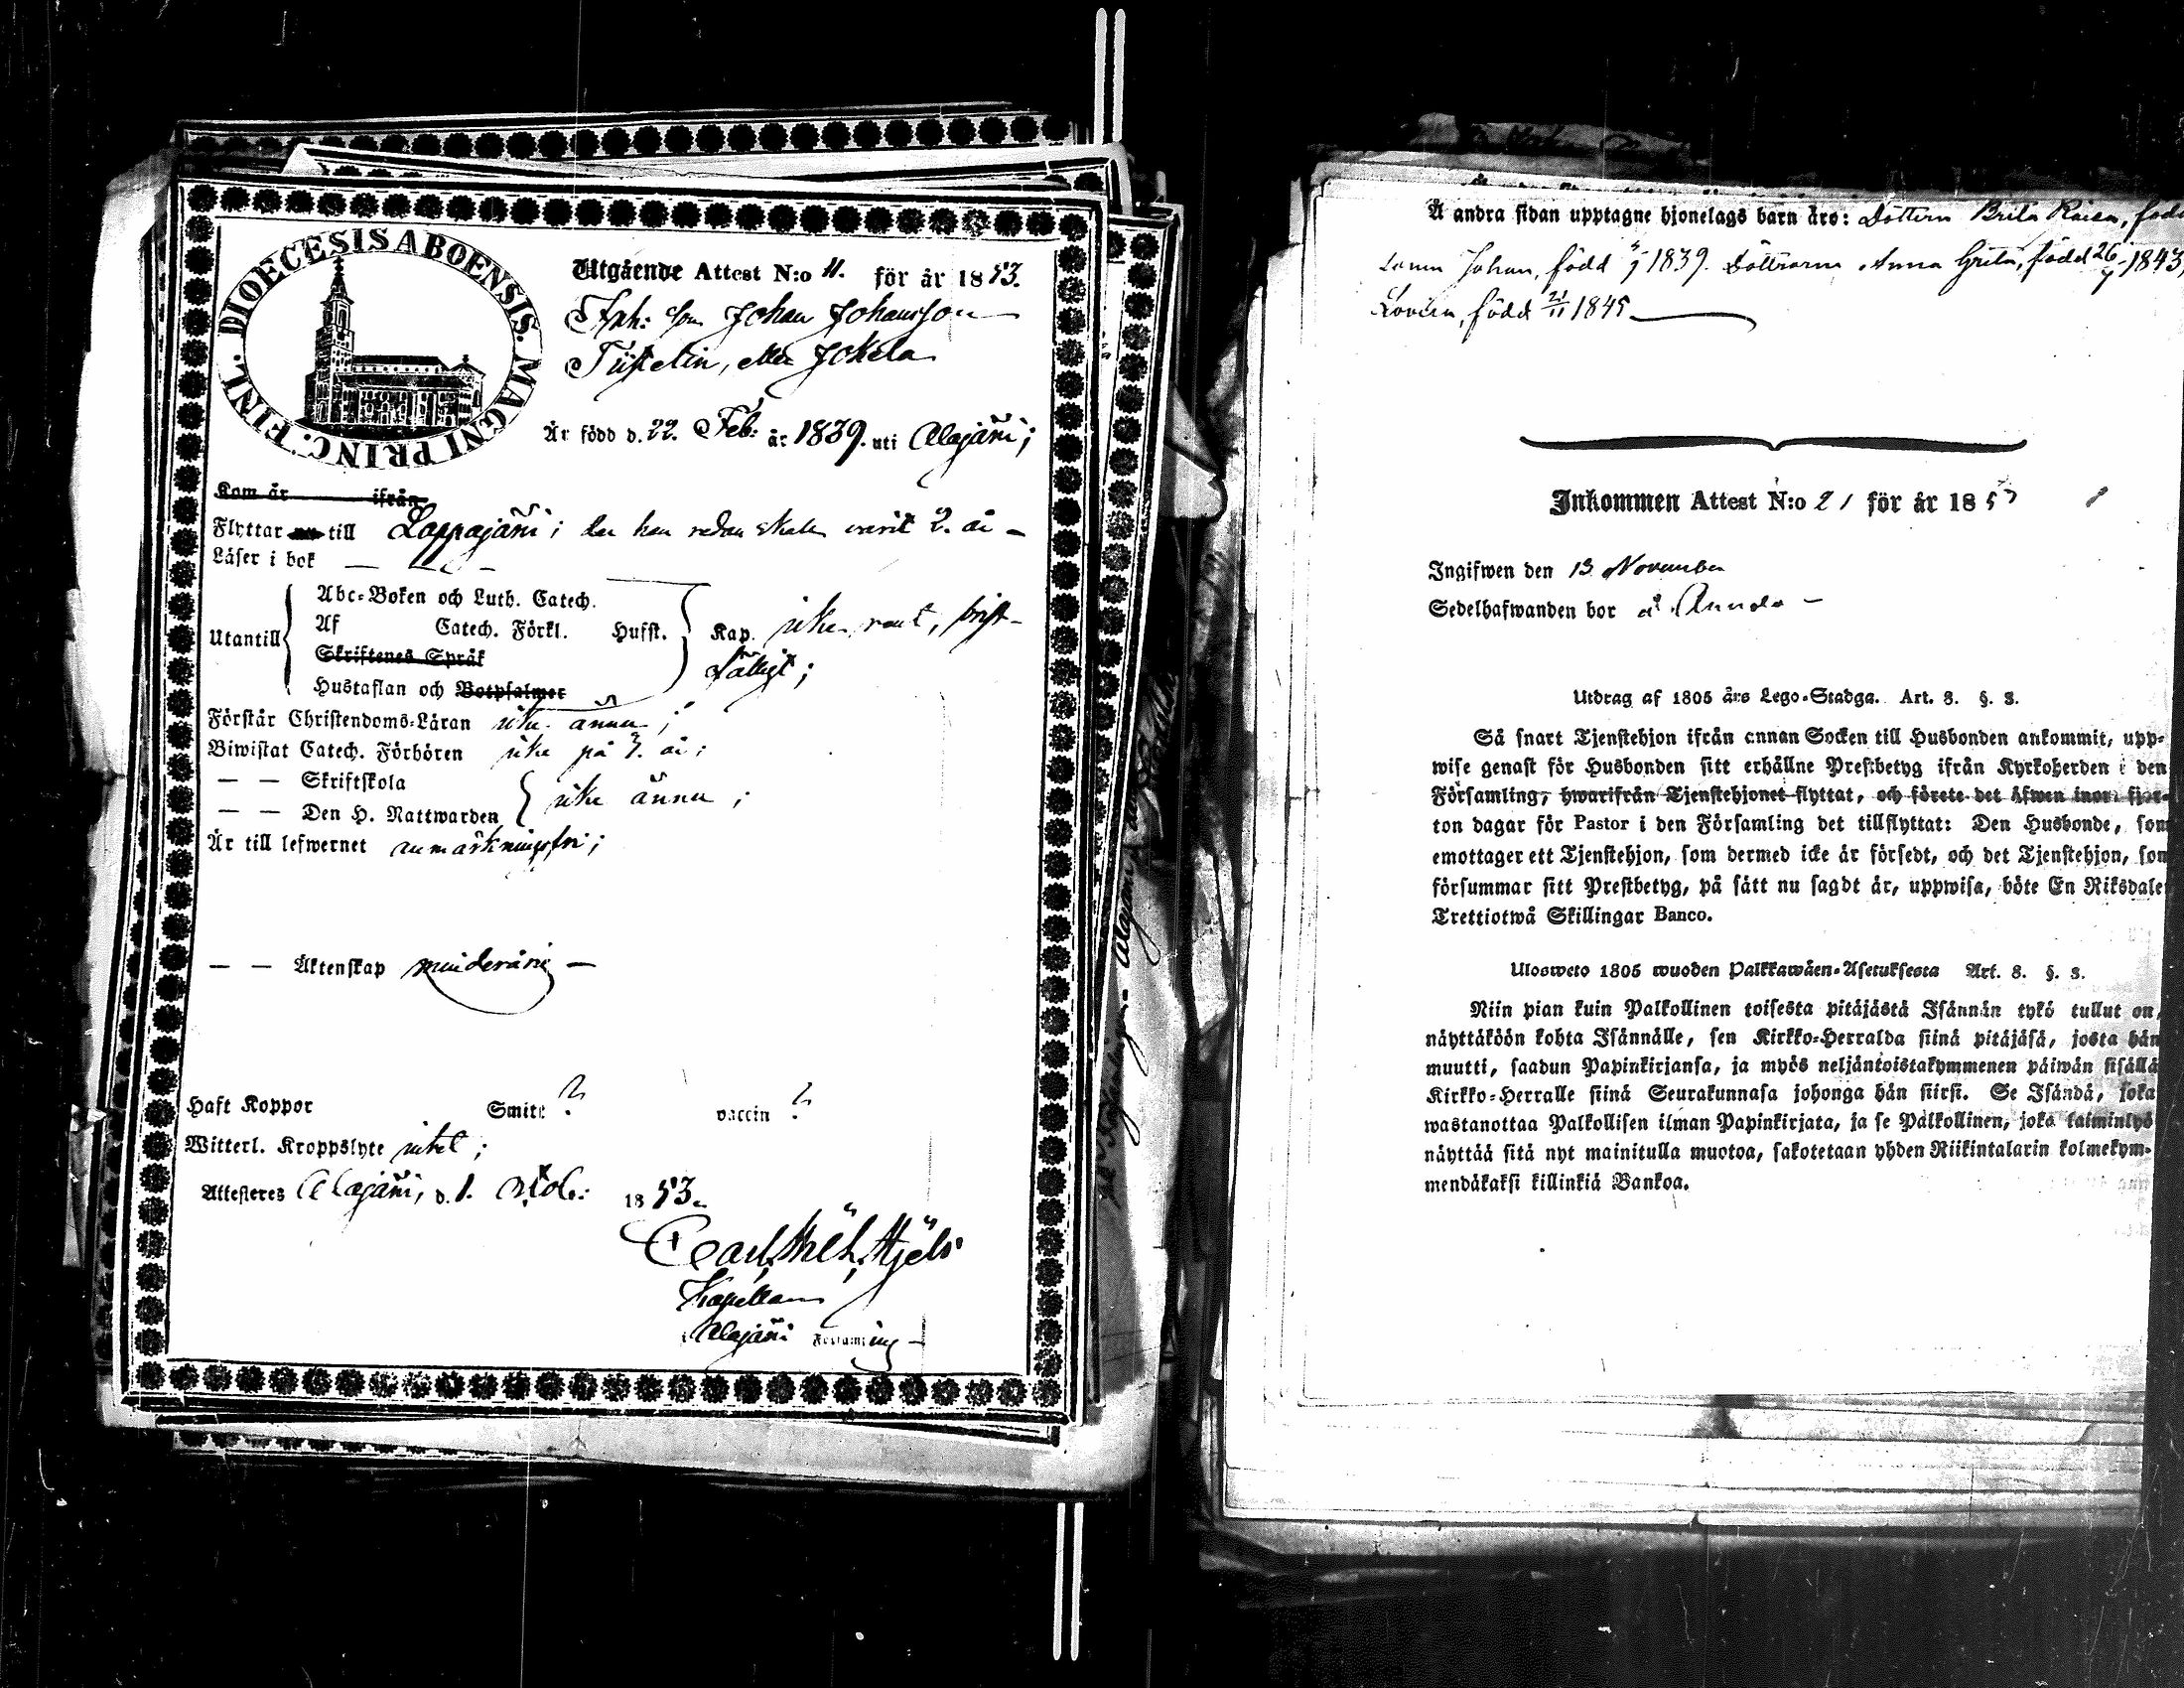 DIOECESIS ABOENSIS. MAGNI PRINC. FINL.
Utgående Attest N:o 11. för år 1853.
Son Johan Johansson
eller Jokela
Är född d. 22. Feb: år 1839. uti Alajärvi;
Kom år ifrån
Flyttar nu till Lappajärvi; der han redan skall varit 2. år –
Läser i bok — — –
Utantill
Abc-Boken och Luth. Catech.
Af Catech. Förkl. Hufst. Kap.
Skriftenes Språk
Hustaflan och Botpsalmer
Förstår Christendoms-Läran icke ännu;
Biwistat Catech. Förhören icke på 7. år;
— — Skriftskola
— — Den H. Nattwarden icke ännu;
Är till lefwernet anmärkningsfri;
— — Äktenskap minderårig –
Haft Koppor Smitt ? vaccin ?
Witterl. Kroppslyte intet;
Attesteres Alajärvi, d. 1. 1853.
Carl
Kapellan
i Alajärvi Församling –
Å andra sidan upptagne hjonelags barn äro: Döttern Brita Kaisa, född
Johan, född 1839. Döttrarna Anna Greta, född 26 1843
Lovisa, född 21/11 1845
Inkommen Attest N:o 21 för år 1853
Ingifwen den 13 November
Sedelhafwanden bor å
Utdrag af 1805 års Lego-Stadga. Art. 3. §. 3.
Så snart Tjenstehjon ifrån annan Socken till Husbonden ankommit, upp-
wise genast för Husbonden sitt erhållne Prestbetyg ifrån Kyrkoherden i den
Församling, hwarifrån Tjenstehjonet flyttat, och förete det äfwen inom fjor-
ton dagar för Pastor i den Församling det tillflyttat: Den Husbonde, som
emottager ett Tjenstehjon, som dermed icke är försedt, och det Tjenstehjon, som
försummar sitt Prestbetyg, på sätt nu sagdt är, uppwisa, böte En Riksdaler
Trettiotwå Skillingar Banco.
Ulosweto 1805 wuoden Palkkawäen-Asetuksesta Art. 3. §. 3.
Niin pian kuin Palkollinen toisesta pitäjästä Isännän tykö tullut on,
näyttäköön kohta Isännälle, sen Kirkko-Herralda siinä pitäjäsä, josta hän
muutti, saadun Papinkirjansa, ja myös neljäntoistakymmenen päiwän sisällä
Kirkko-Herralle siinä Seurakunnasa johonga hän siirsi. Se Isändä, joka
wastanottaa Palkollisen ilman Papinkirjata, ja se Palkollinen, joka laiminlyö
näyttää sitä nyt mainitulla muotoa, sakotetaan yhden Riikintalarin kolmekym-
mendäkaksi killinkiä Bankoa.